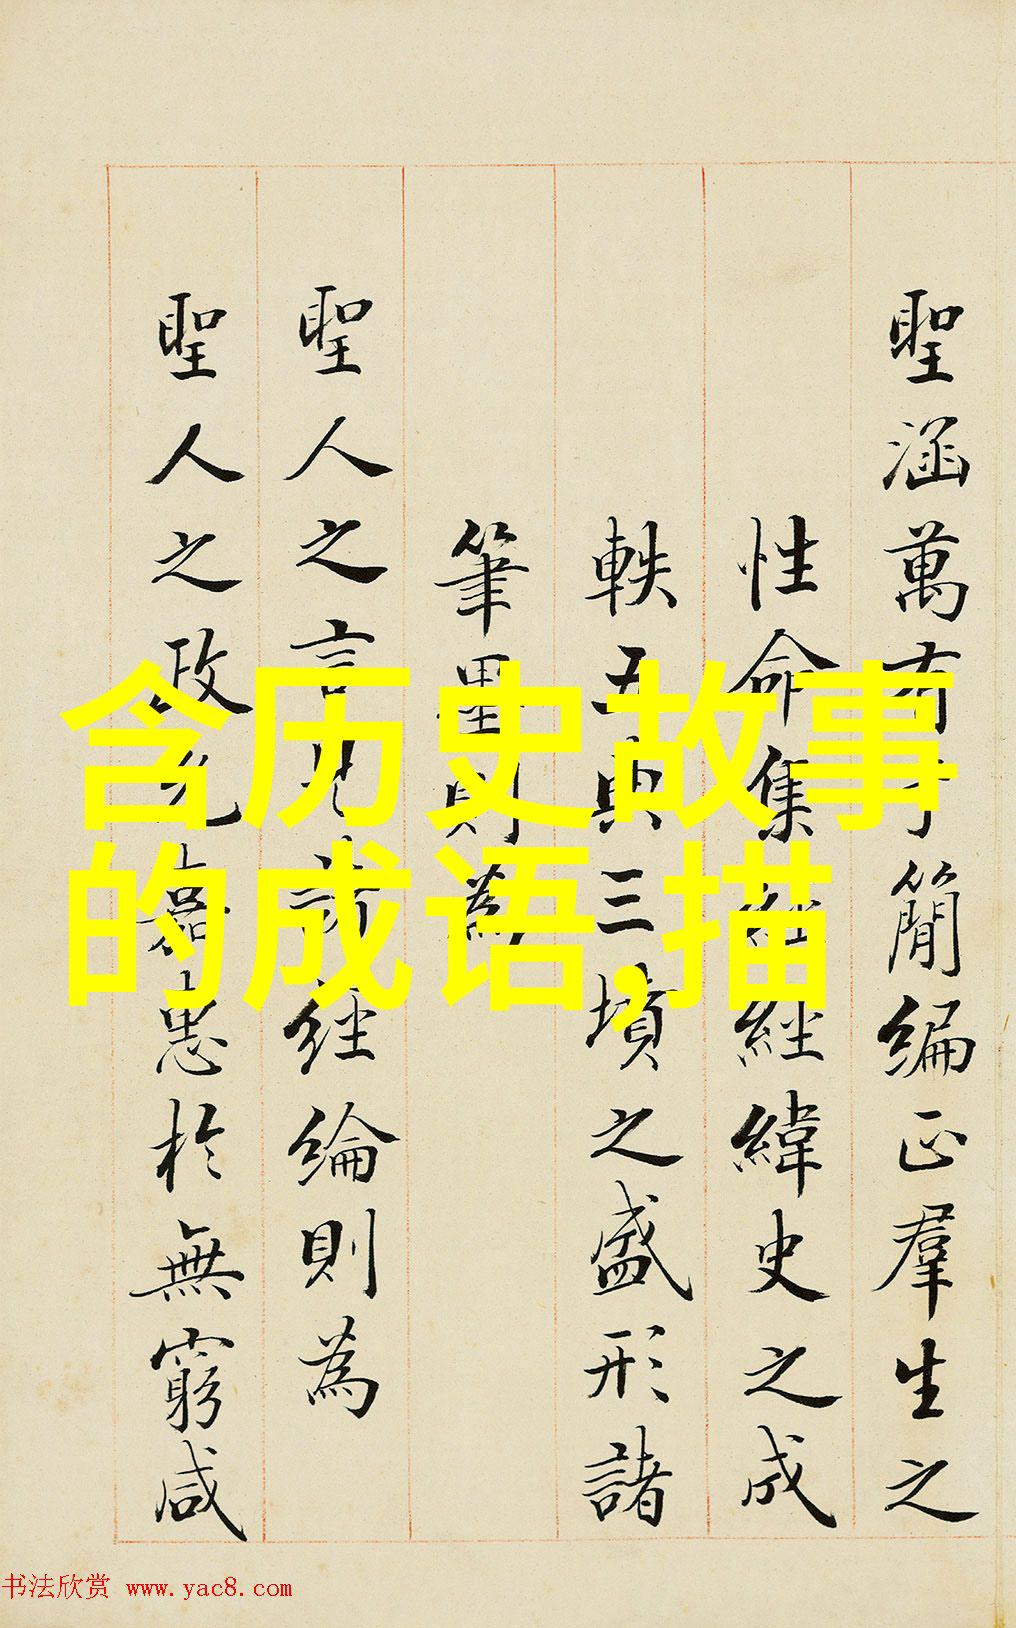 聖涵萬有于簡編正羣生之
性命集經緯史之成
軼五典三墳之盛形諸
筆墨則為
聖人之言見諸經綸則為
聖人之政光啚惠於無窮咸
含历史故事
的成语,描
书法欣赏 www.yac8.com